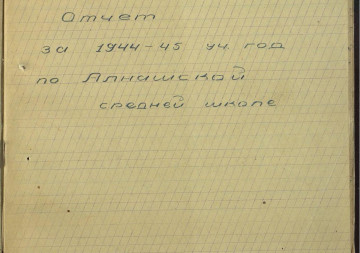 Отчет
за 1944-45 уч. год
по Алнашской
средней школе